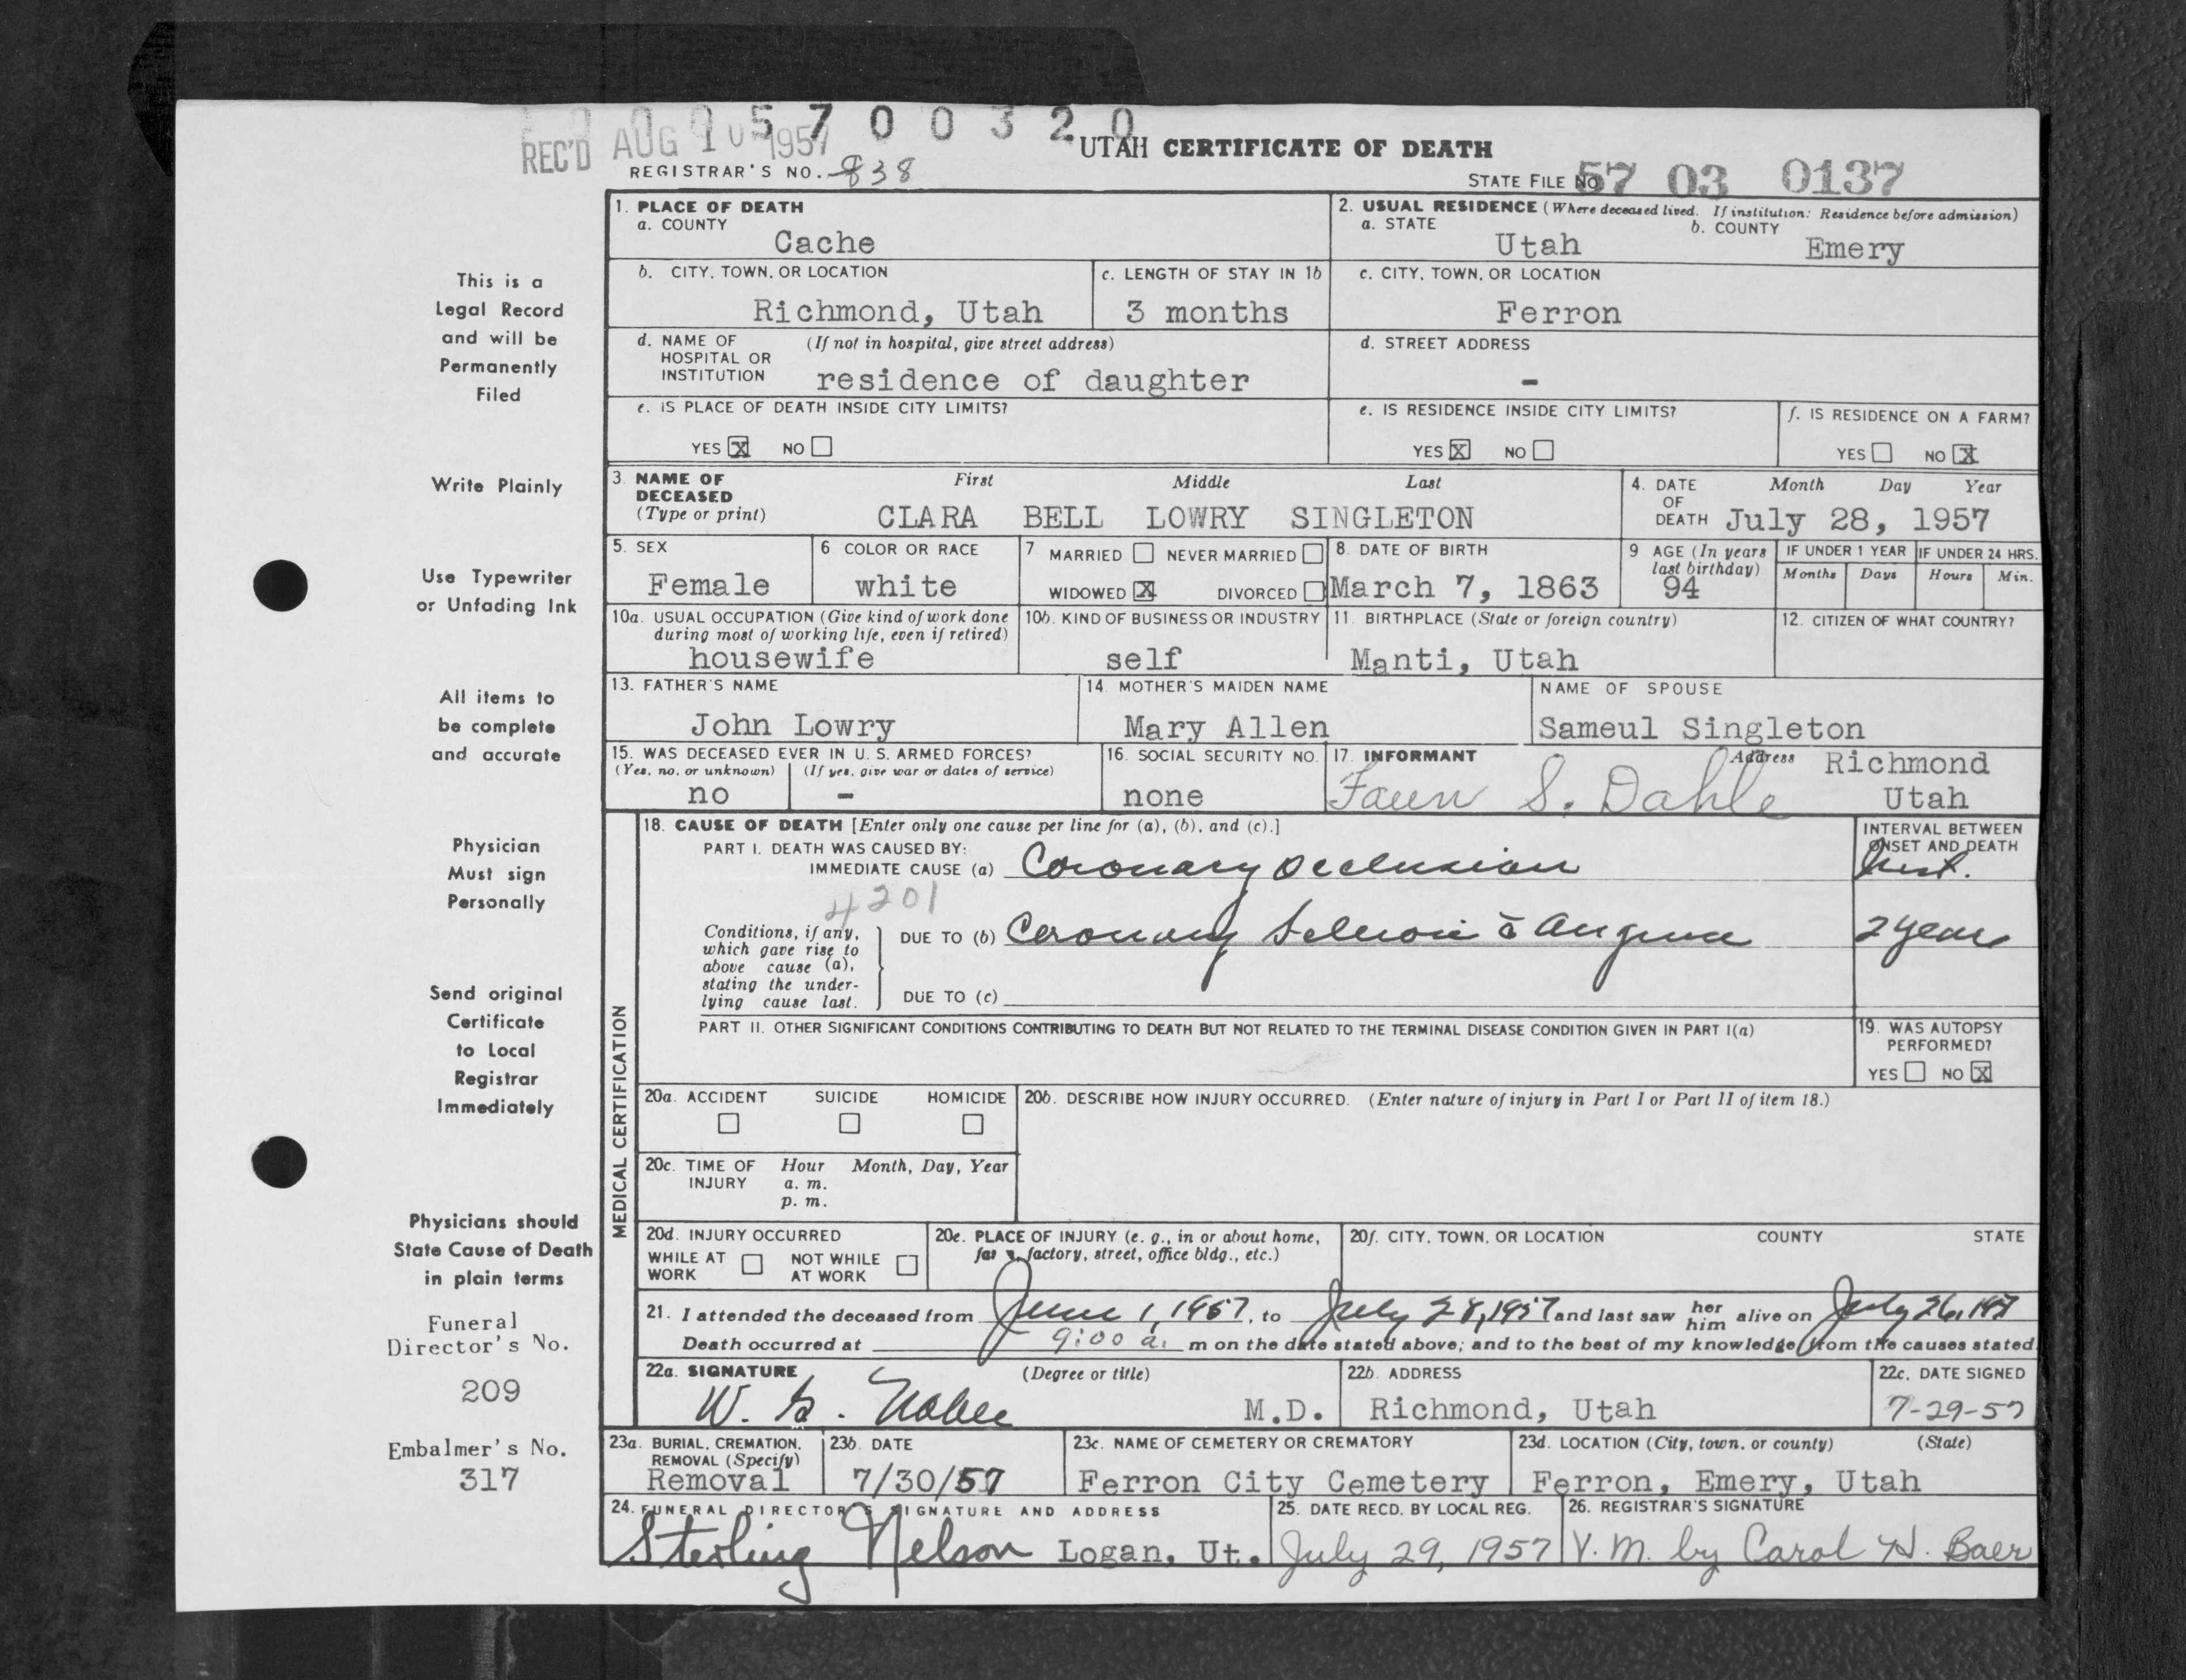 5 7 0 0 3 2 0
REC'D AUG 10 1957
UTAH CERTIFICATE OF DEATH
REGISTRAR'S NO. 838
STATE FILE NO. 57 03 0137
1. PLACE OF DEATH
a. COUNTY
Cache
2. USUAL RESIDENCE (Where deceased lived. If institution: Residence before admission)
a. STATE
Utah
b. COUNTY
Emery
b. CITY, TOWN, OR LOCATION
Richmond, Utah
c. LENGTH OF STAY IN 1b
3 months
c. CITY, TOWN, OR LOCATION
Ferron
d. NAME OF HOSPITAL OR INSTITUTION
(If not in hospital, give street address)
residence of daughter
d. STREET ADDRESS
-
e. IS PLACE OF DEATH INSIDE CITY LIMITS?
YES X NO
e. IS RESIDENCE INSIDE CITY LIMITS?
YES X NO
f. IS RESIDENCE ON A FARM?
YES NO X
3. NAME OF DECEASED (Type or print)
First Middle Last
CLARA BELL LOWRY SINGLETON
4. DATE OF DEATH
Month Day Year
July 28, 1957
5. SEX
Female
6 COLOR OR RACE
white
7 MARRIED NEVER MARRIED
WIDOWED X DIVORCED
8. DATE OF BIRTH
March 7, 1863
9 AGE (In years last birthday)
94
IF UNDER 1 YEAR
Months Days
IF UNDER 24 HRS.
Hours Min.
10a. USUAL OCCUPATION (Give kind of work done during most of working life, even if retired)
housewife
10b. KIND OF BUSINESS OR INDUSTRY
self
11. BIRTHPLACE (State or foreign country)
Manti, Utah
12. CITIZEN OF WHAT COUNTRY?
13. FATHER'S NAME
John Lowry
14. MOTHER'S MAIDEN NAME
Mary Allen
NAME OF SPOUSE
Sameul Singleton
15. WAS DECEASED EVER IN U. S. ARMED FORCES?
(Yes, no, or unknown) (If yes, give war or dates of service)
no -
16. SOCIAL SECURITY NO.
none
17. INFORMANT
Faun S. Dahle
Address Richmond
Utah
MEDICAL CERTIFICATION
18. CAUSE OF DEATH [Enter only one cause per line for (a), (b), and (c).]
PART I. DEATH WAS CAUSED BY:
IMMEDIATE CAUSE (a) Coronary Occlusion
INTERVAL BETWEEN ONSET AND DEATH
Inst.
4201
Conditions, if any, which gave rise to above cause (a), stating the underlying cause last.
DUE TO (b) Coronary c̄ Angina
2 years
DUE TO (c)
PART II. OTHER SIGNIFICANT CONDITIONS CONTRIBUTING TO DEATH BUT NOT RELATED TO THE TERMINAL DISEASE CONDITION GIVEN IN PART I(a)
19. WAS AUTOPSY PERFORMED?
YES NO X
20a. ACCIDENT SUICIDE HOMICIDE
20b. DESCRIBE HOW INJURY OCCURRED. (Enter nature of injury in Part I or Part II of item 18.)
20c. TIME OF INJURY
Hour Month, Day, Year
a. m.
p. m.
20d. INJURY OCCURRED
WHILE AT WORK NOT WHILE AT WORK
20e. PLACE OF INJURY (e. g., in or about home, farm, factory, street, office bldg., etc.)
20f. CITY, TOWN, OR LOCATION COUNTY STATE
21. I attended the deceased from June 1, 1957, to July 28, 1957 and last saw her him alive on July 26, 1957
Death occurred at 9:00 a. m on the date stated above; and to the best of my knowledge, from the causes stated.
22a. SIGNATURE (Degree or title)
W. M.D.
22b. ADDRESS
Richmond, Utah
22c. DATE SIGNED
7-29-57
23a. BURIAL, CREMATION, REMOVAL (Specify)
Removal
23b. DATE
7/30/57
23c. NAME OF CEMETERY OR CREMATORY
Ferron City Cemetery
23d. LOCATION (City, town, or county) (State)
Ferron, Emery, Utah
24. FUNERAL DIRECTOR'S SIGNATURE AND ADDRESS
Sterling Nelson Logan, Ut.
25. DATE RECD. BY LOCAL REG.
July 29, 1957
26. REGISTRAR'S SIGNATURE
V. M. by Carol H. Baer
This is a
Legal Record
and will be
Permanently
Filed
Write Plainly
Use Typewriter
or Unfading Ink
All items to
be complete
and accurate
Physician
Must sign
Personally
Send original
Certificate
to Local
Registrar
Immediately
Physicians should
State Cause of Death
in plain terms
Funeral
Director's No.
209
Embalmer's No.
317